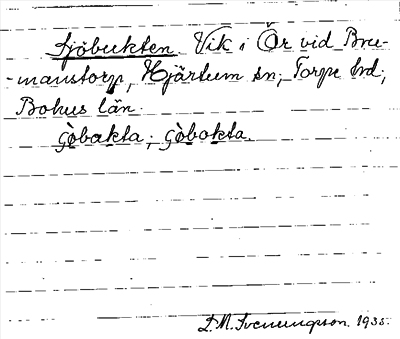 Sjöbukten. Vik i Ör vid Bru-
-manstorp, Hjärtum sn; Torpe hd;
Bohus län.
gòbakta; gòbokta.
D.M. Svenungsson. 1935.